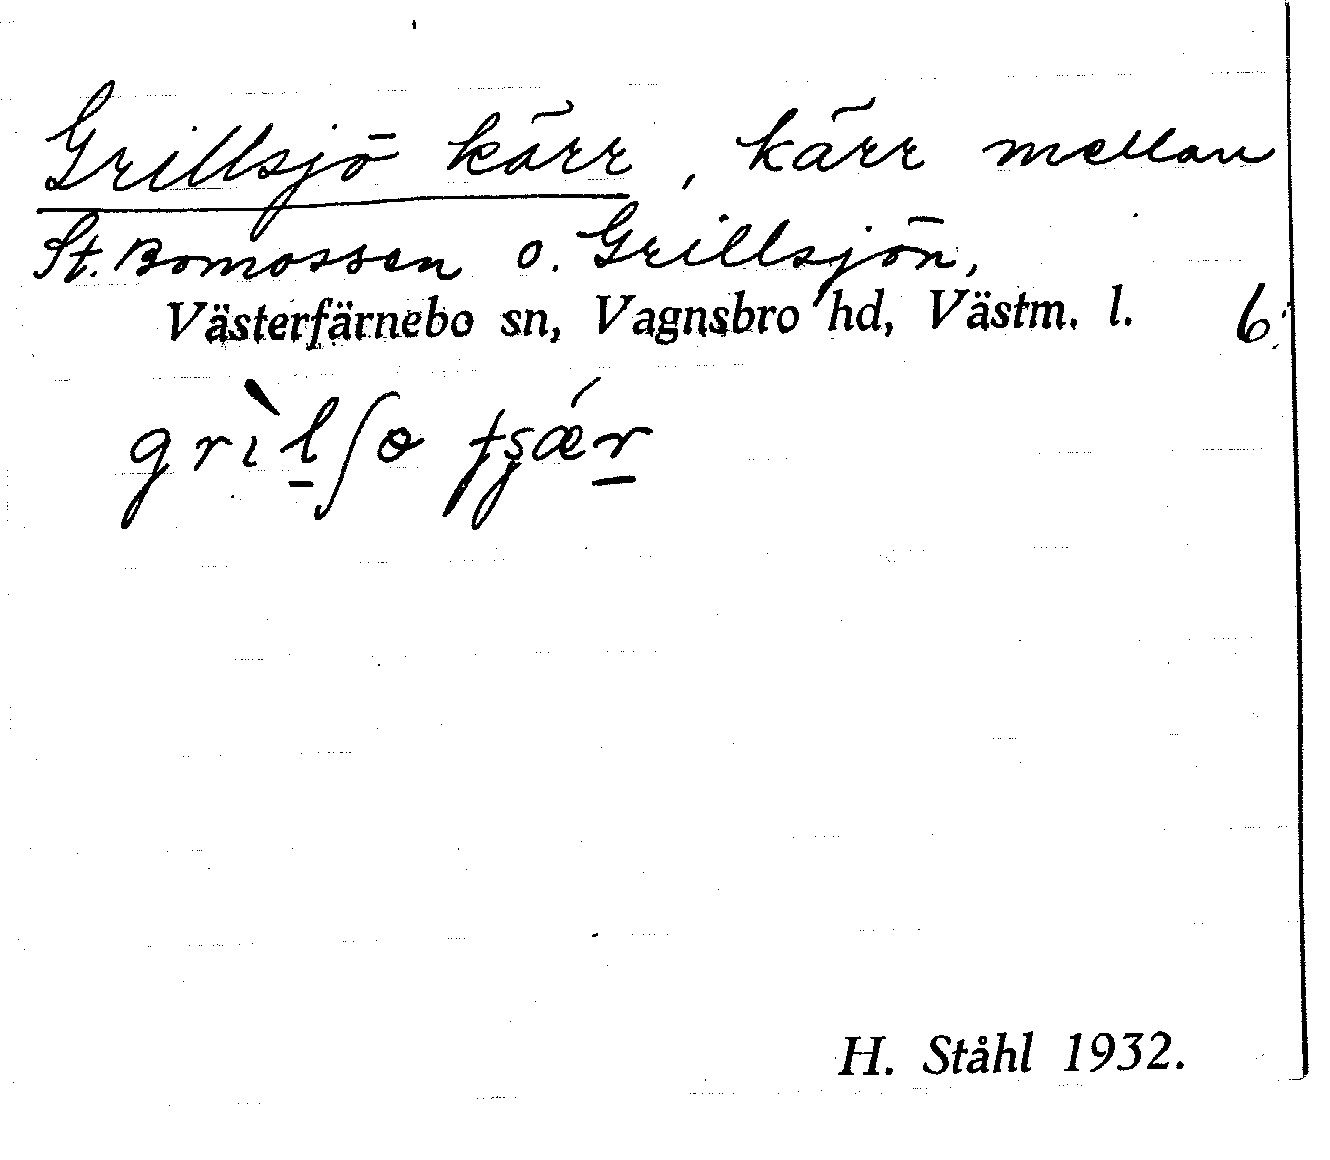 Grillsjö kärr, kärr mellan
St. Bomossen o. Grillsjön,
Västerfärnebo sn, Vagnsbro hd, Västm. l. 6.
H. Ståhl 1932.